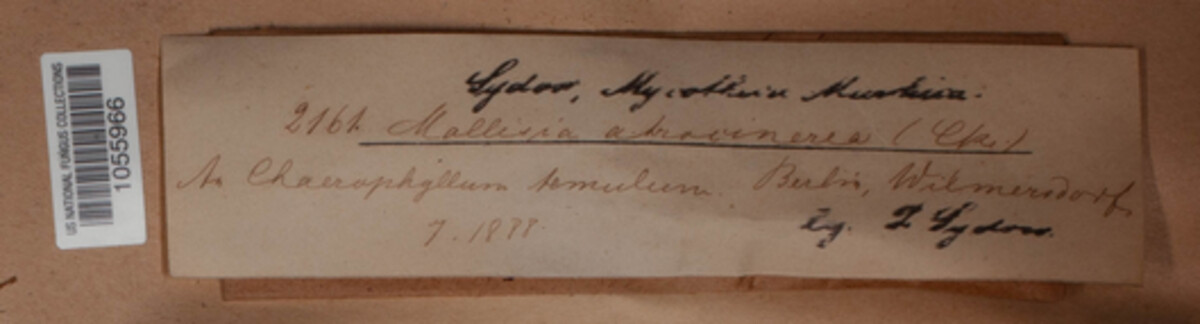 US NATIONAL FUNGUS COLLECTIONS
1055966
Sydow, Mycotheca Marchica.
2161. Mollisia atrocinerea (Cke.)
An Chaerophyllum temulum. Berlin, Wilmersdorf.
7. 1888
leg. P. Sydow.